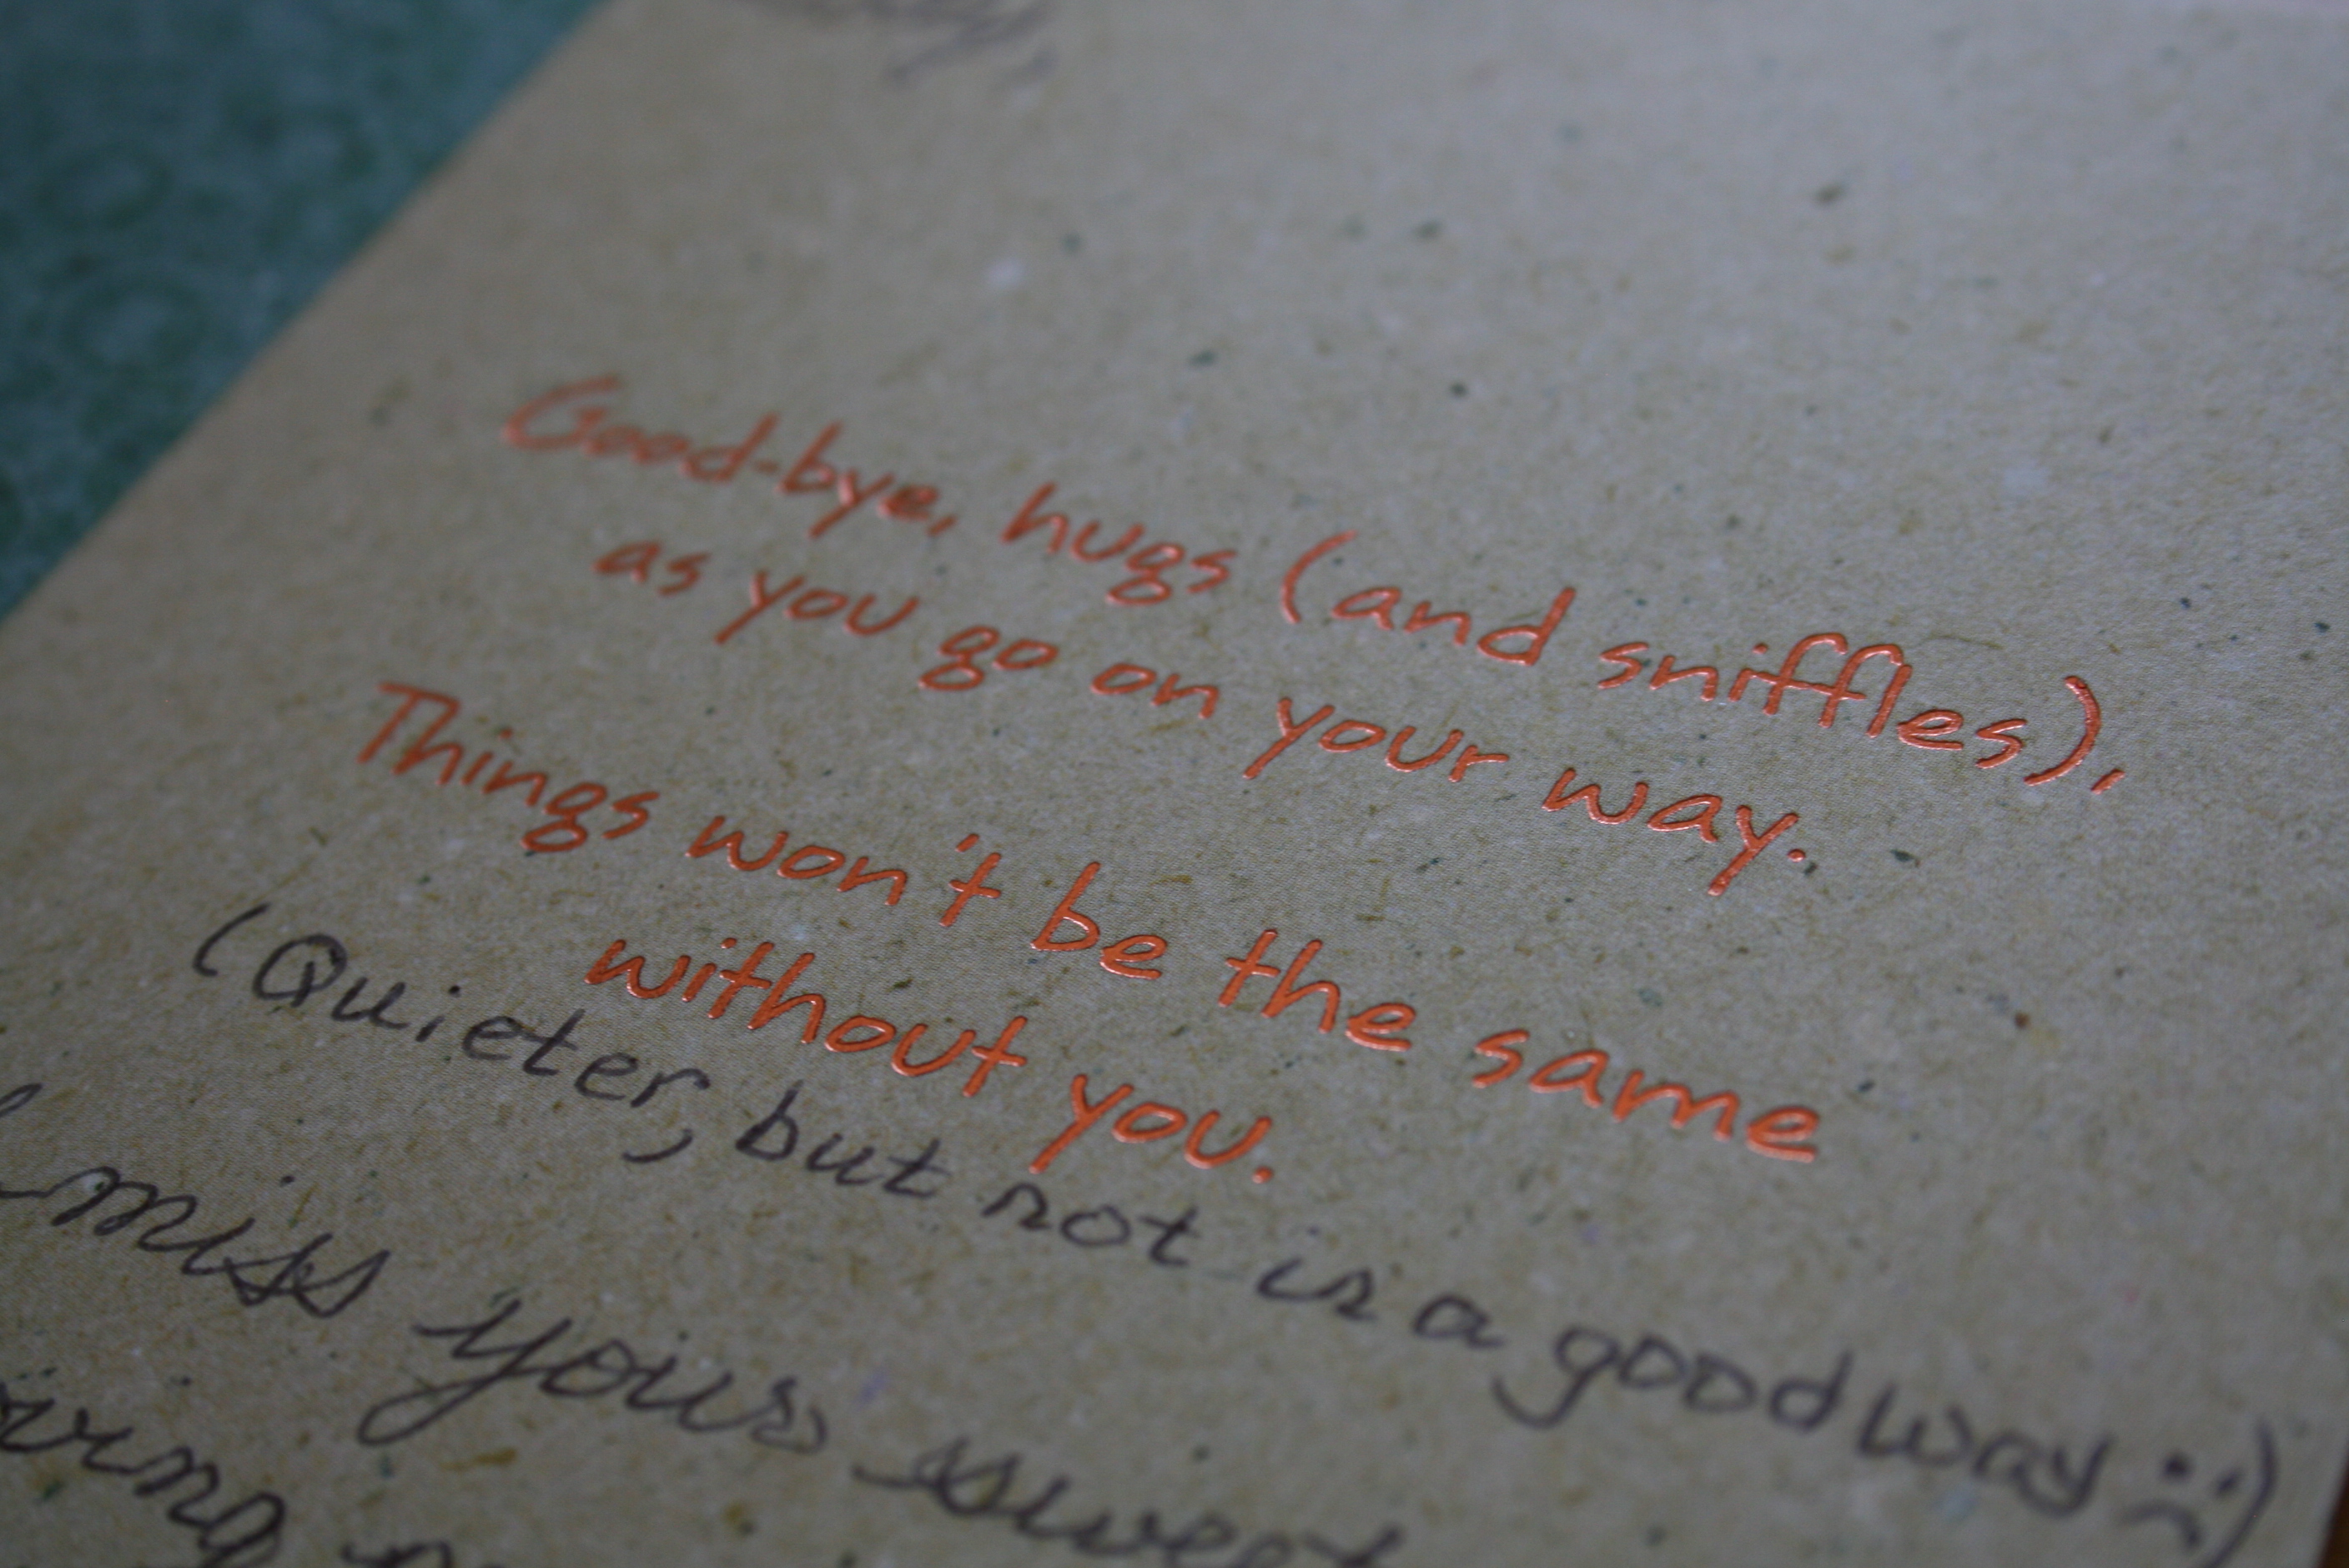 Good-bye, hugs (and sniffles),
as you go on your way.
Things won't be the same
without you.
(Quieter, but not in a good way :()
miss your sweet